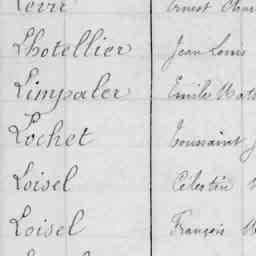 Lhotellier Jean Louis
Limpaler Emile
Lochet Toussaint
Loisel Célestin
Loisel François